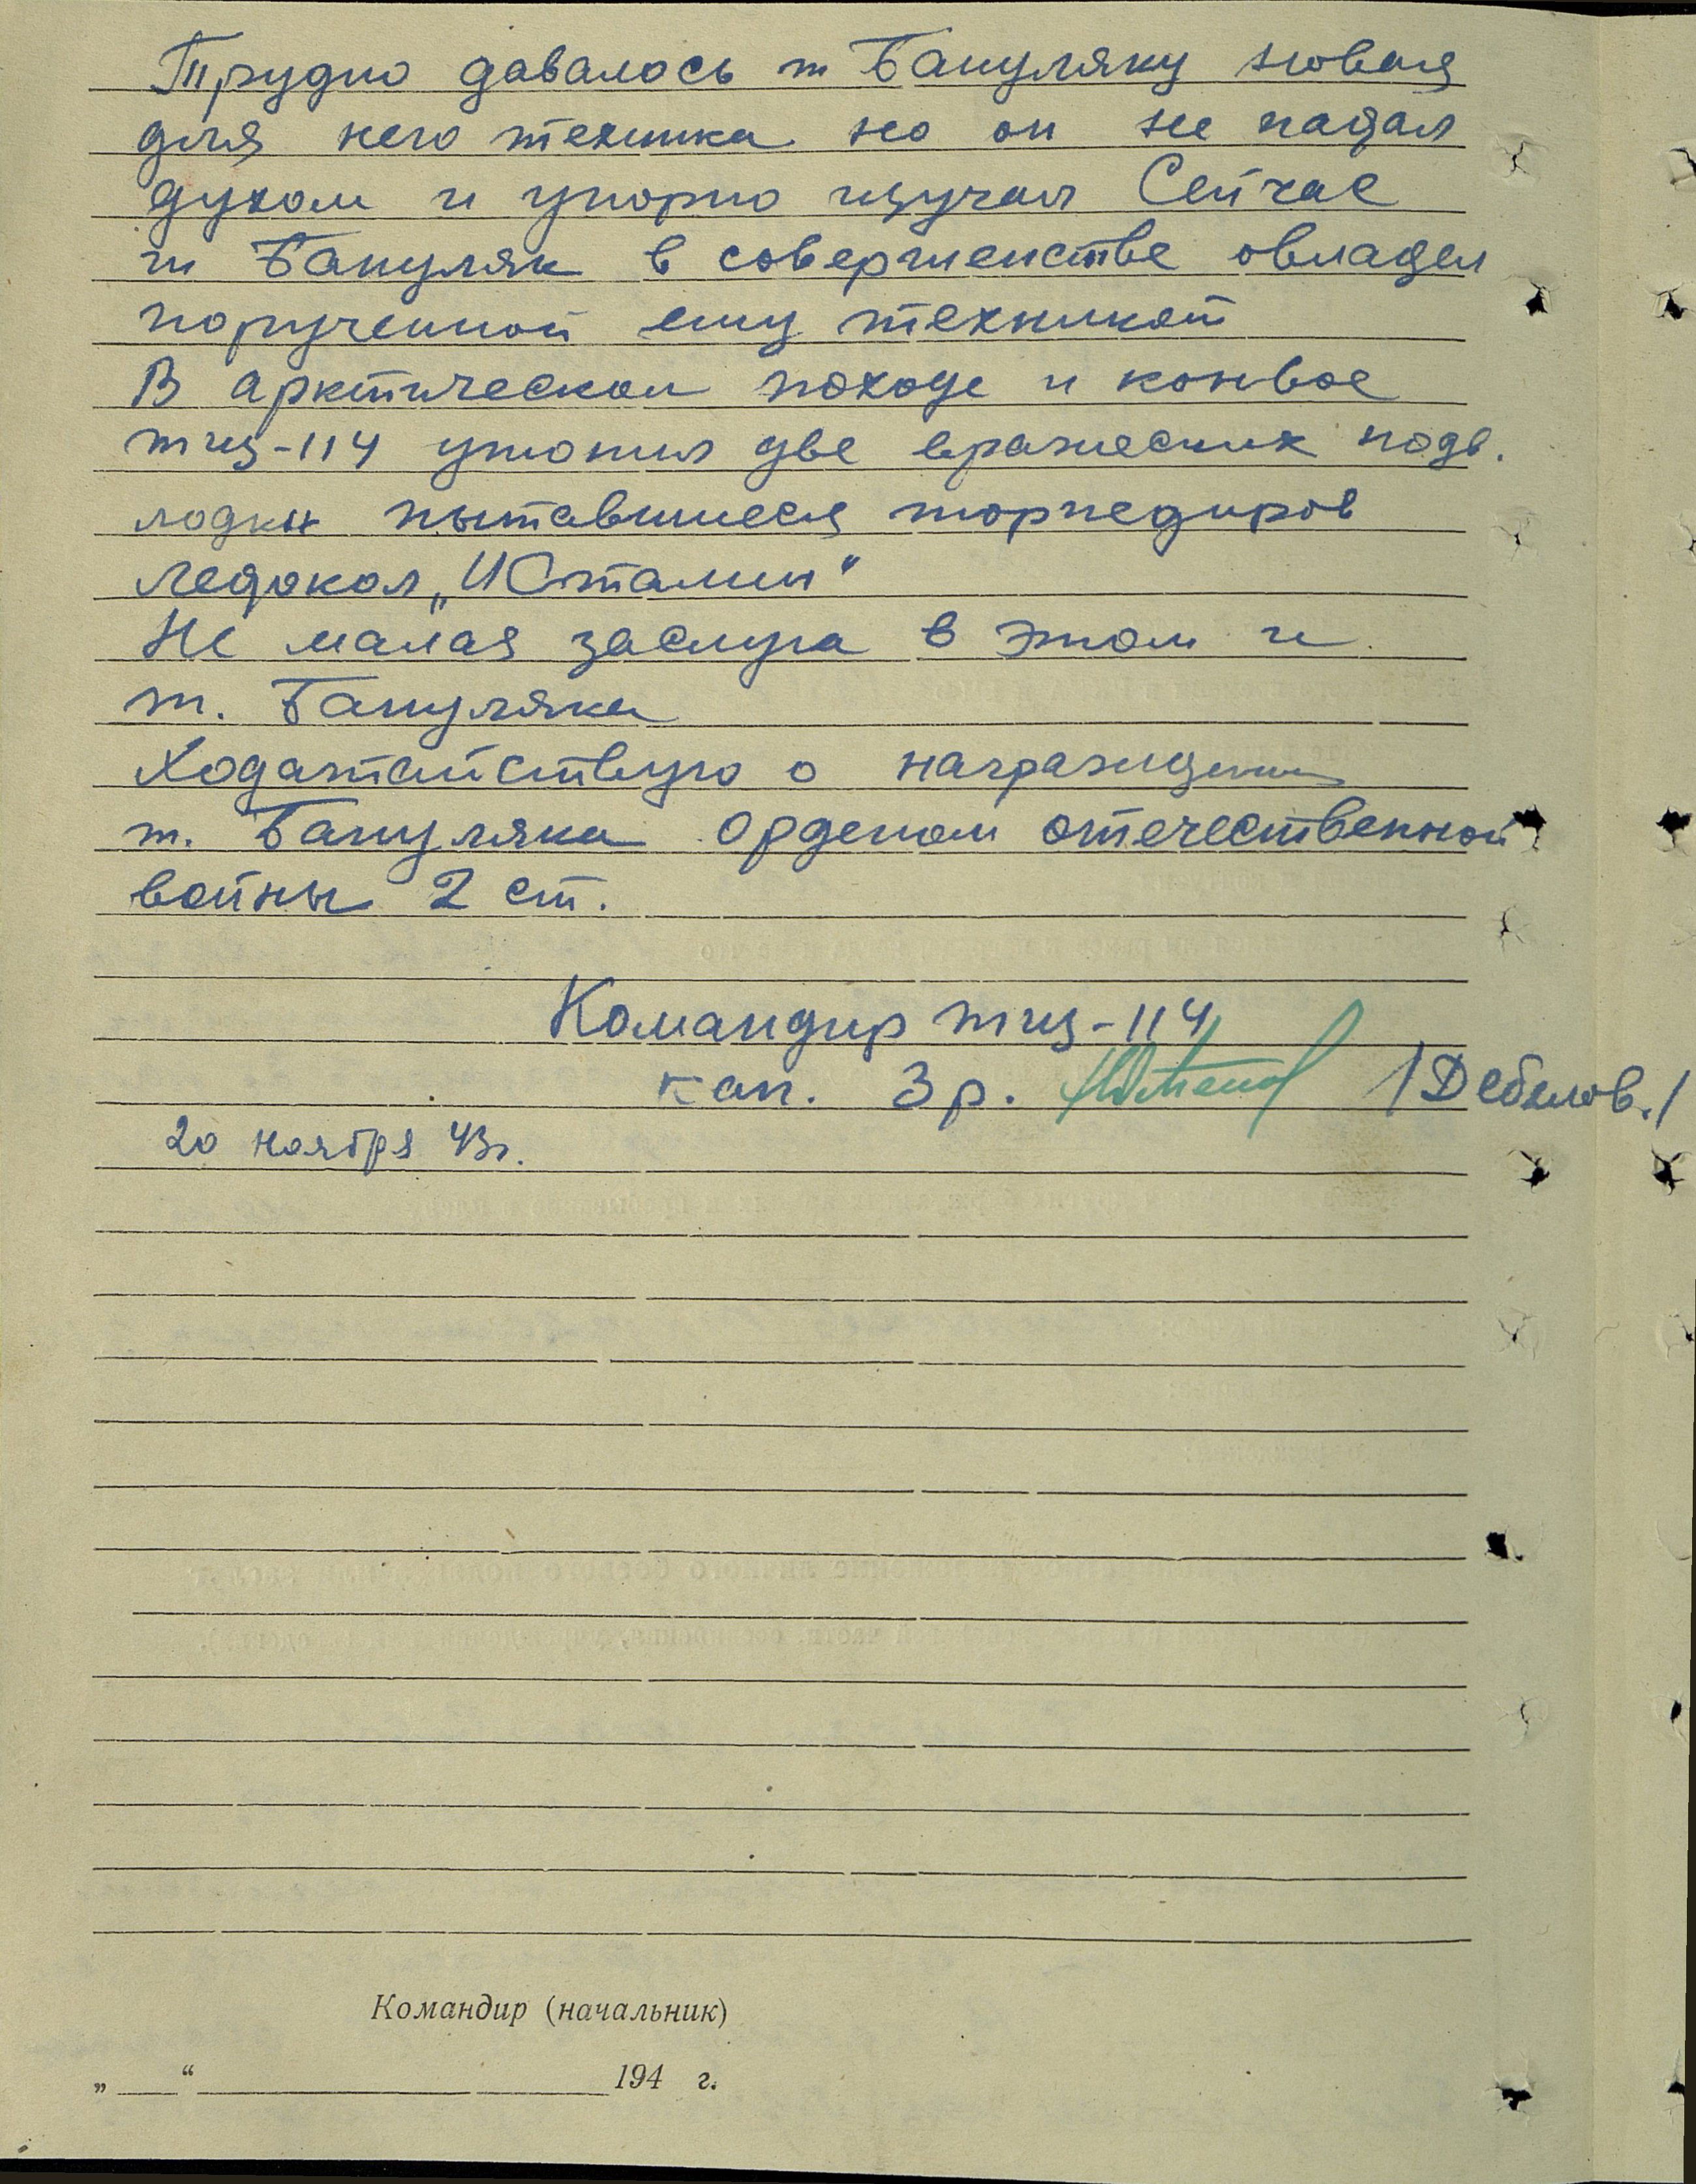 Трудно давалось т Бануляку новая
для него техника но он не падал
духом и упорно изучал Сейчас
т Бануляк в совершенстве овладел
порученной ему техникой
В арктическом походе и конвое
тщ-114 утопил две вражеских подв.
лодки пытавшиеся торпедиров
ледокол „И Сталин"
Не малая заслуга в этом и
т. Бануляка
Ходатайствую о награждении
т. Бануляка Орденом отечественной
войны 2 ст.
Командир тщ-114
кап. 3 р. /Дебелов./
20 ноября 43г.
Командир (начальник)
„ “ 194 г.